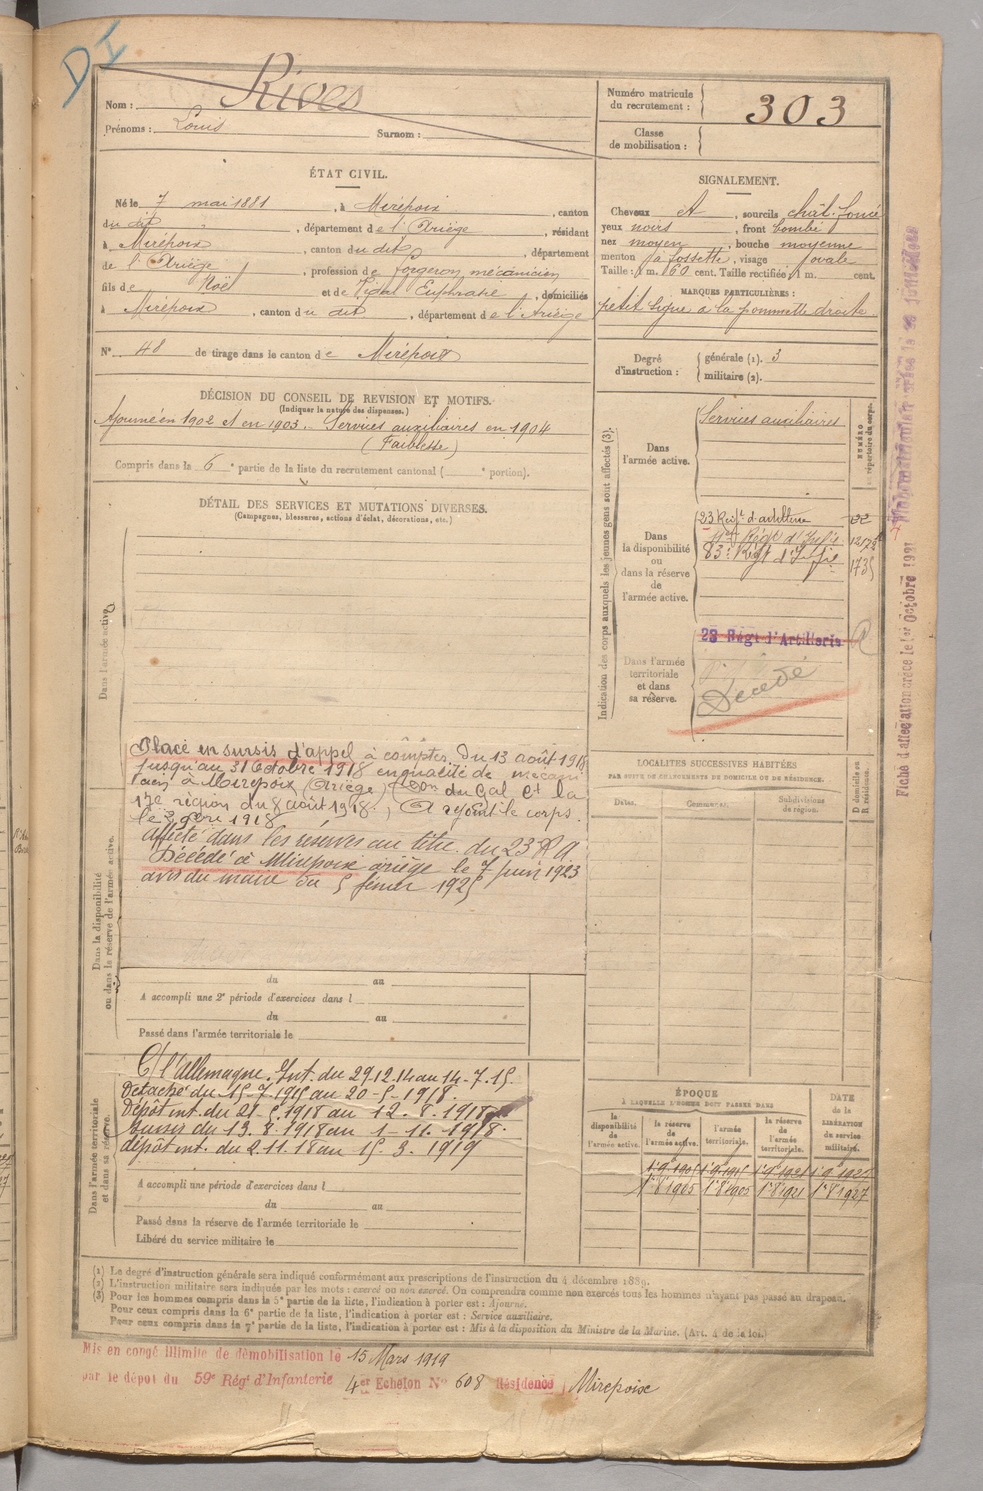 DI
Nom : Rives
Prénoms : Louis Surnom :
Numéro matricule
du recrutement : 303
Classe
de mobilisation :
ÉTAT CIVIL.
Né le 7 mai 1881, à Mirepoix, canton
du dit, département de l'Ariège, résidant
à Mirepoix, canton du dit, département
de l'Ariège, profession de forgeron mécanicien
fils de Noël et de Vidal Euphrasie, domiciliés
à Mirepoix, canton du dit, département de l'Ariège
N° 48 de tirage dans le canton de Mirepoix
SIGNALEMENT.
Cheveux et, sourcils chât. foncé
yeux noirs, front bombé
nez moyen, bouche moyenne
menton à fossette, visage ovale
Taille : 1 m. 60 cent. Taille rectifiée, 1 m. cent.
MARQUES PARTICULIÈRES :
petit signe à la pommette droite
Degré
d'instruction : générale (1). 3
militaire (2).
DÉCISION DU CONSEIL DE REVISION ET MOTIFS.
(Indiquer la nature des dispenses.)
Ajourné en 1902 et en 1903. Services auxiliaires en 1904
(Faiblesse)
Compris dans la 6e partie de la liste du recrutement cantonal ( e portion).
DÉTAIL DES SERVICES ET MUTATIONS DIVERSES.
(Campagnes, blessures, actions d'éclat, décorations, etc.)
Dans l'armée active.
Placé en sursis d'appel à compter du 13 août 1918
jusqu'au 31 Octobre 1918 en qualité de mécani
cien à Mirepoix (Ariège) du Gal Ct la
17e région du 8 août 1918. A rejoint le corps
le 1918
Affecté dans les réserves au titre du 23 R A
Décédé à Mirepoix ariège le 7 juin 1923
avis du maire du 5 février 1925
Dans la disponibilité
ou dans la réserve de l'armée active.
du au
A accompli une 2e période d'exercices dans l
du au
Passé dans l'armée territoriale le
Dans l'armée territoriale
et dans sa réserve.
C/ l'Allemagne. Int. du 29.12.14 au 14-7.15.
Détaché du 15-7.1915 au 20-5-1918.
Dépôt int. du 21-5.1918 au 12.8.1918
Sursis du 13.8.1918 au 1-11-1918.
dépôt int. du 2.11.18 au 15.3.1919
A accompli une période d'exercices dans l
du au
Passé dans la réserve de l'armée territoriale le
Libéré du service militaire le
Indication des corps auxquels les jeunes gens sont affectés (3).
NUMÉRO
au répertoire du corps.
Dans
l'armée active.
Services auxiliaires
Dans
la disponibilité
ou
dans la réserve
de
l'armée active.
23 Regt d'artillerie
Régt d'Infie
83e Régt d'Infie
23 Régt d'Artillerie
Dans l'armée
territoriale
et dans
sa réserve.
Décédé
LOCALITÉS SUCCESSIVES HABITÉES
PAR SUITE DE CHANGEMENTS DE DOMICILE OU DE RÉSIDENCE.
Dates.
Communes.
Subdivisions
de région.
D domicile ou
R résidence.
ÉPOQUE
À LAQUELLE L'HOMME DOIT PASSER DANS
la
disponibilité
de
l'armée active.
la
réserve de
l'armée active.
l'armée
territoriale.
la réserve
de
l'armée
territoriale.
DATE
de la
LIBÉRATION
du service
militaire.
1er 8 1905 1er 8 1905 1er 8 1921 1er 8 1927
(1) Le degré d'instruction générale sera indiqué conformément aux prescriptions de l'instruction du 4 décembre 1889.
(2) L'instruction militaire sera indiquée par les mots : exercé ou non exercé. On comprendra comme non exercés tous les hommes n'ayant pas passé au drapeau.
(3) Pour les hommes compris dans la 5e partie de la liste, l'indication à porter est : Ajourné.
Pour ceux compris dans la 6e partie de la liste, l'indication à porter est : Service auxiliaire.
Pour ceux compris dans la 7e partie de la liste, l'indication à porter est : Mis à la disposition du Ministre de la Marine. (Art. 4 de la loi.)
Mis en congé illimité de démobilisation le 15 Mars 1919
par le dépôt du 59e Régt d'Infanterie 4er Echelon N° 608 Résidence Mirepoix